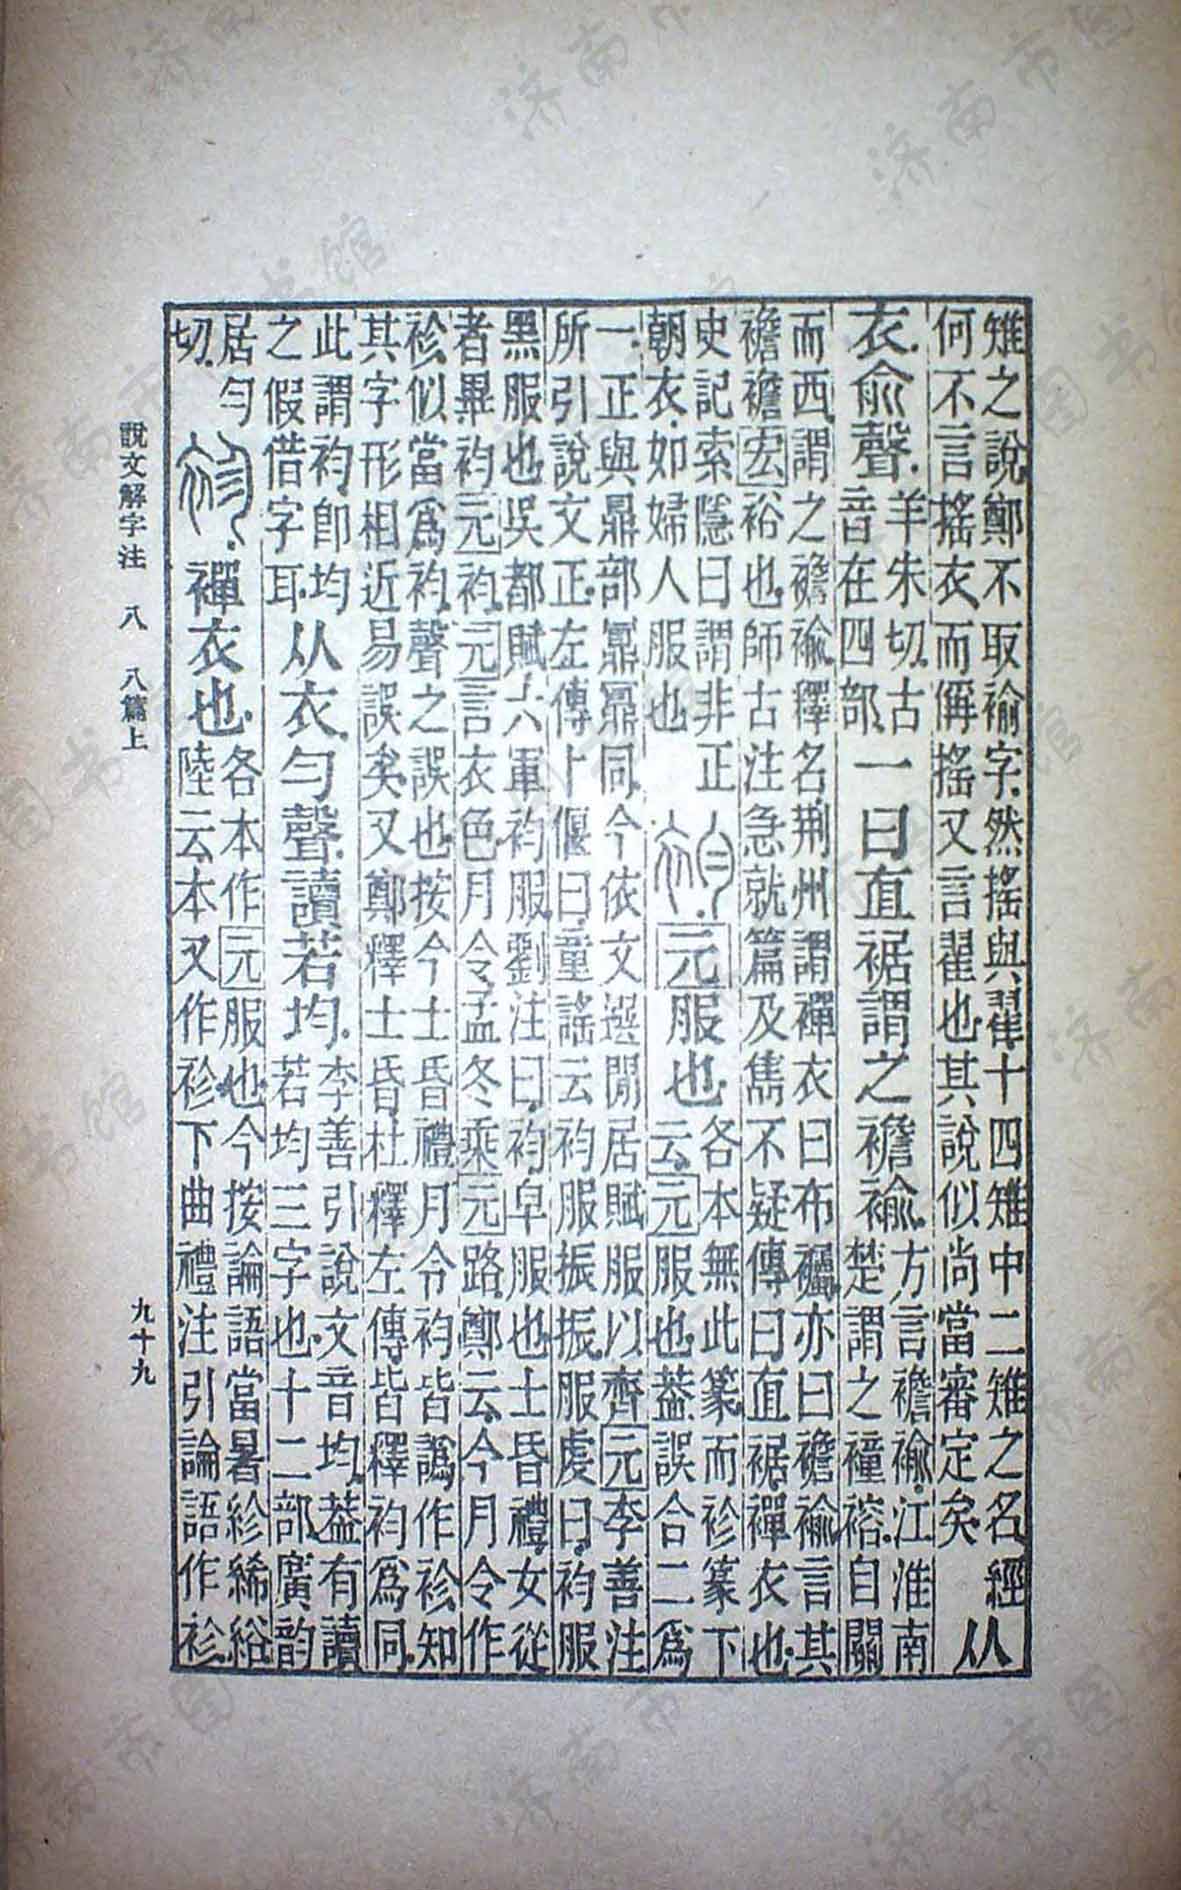 雉之說鄭不取褕字.然搖與翟十四雉中二雉之名.經
何不言搖衣.而偁搖又言翟也.其說似尚當審定矣.
从
衣.俞聲.
羊朱切.古
音在四部.
一曰直裾謂之襜褕.
方言襜褕.江淮南
楚謂之𧝎褣.自關
而西謂之襜褕.釋名.荆州謂襌衣曰布亦曰襜褕.言其
襜襜宏裕也.師古注急就篇及雋不疑傳曰.直裾襌衣也.
史記索隱曰謂非正
朝衣.如婦人服也
袀.
元服也.
各本無此篆.而袗篆下
云.元服也.葢誤合二爲
一.正與鼎部鼏鼐同.今依文選閒居賦服以齊元李善注
所引說文正.左傳卜偃曰.童謠云.袀服振振.服虔曰.袀服
黑服也.吳都賦.六軍袀服.劉注曰.袀.皁服也.士昏禮.女從
者畢袀元.袀.元言衣色.月令孟冬乘元路.鄭云.今月令作
袗.似當爲袀.聲之誤也.按今士昏禮月令袀皆譌作袗.知
其字形相近易誤矣.又鄭釋士昏.杜釋左傳.皆釋袀爲同.
此謂袀卽均
之假借字耳.
从衣.勻聲.讀若均.
李善引說文音均.葢有讀
若均三字也.十二部.廣韵
居勻
切.
袗.
襌衣也.
各本作元服也.今按論語當暑紾絺綌
陸云.本又作袗.下曲禮注引論語作袗.
說文解字注 八 八篇上 九十九